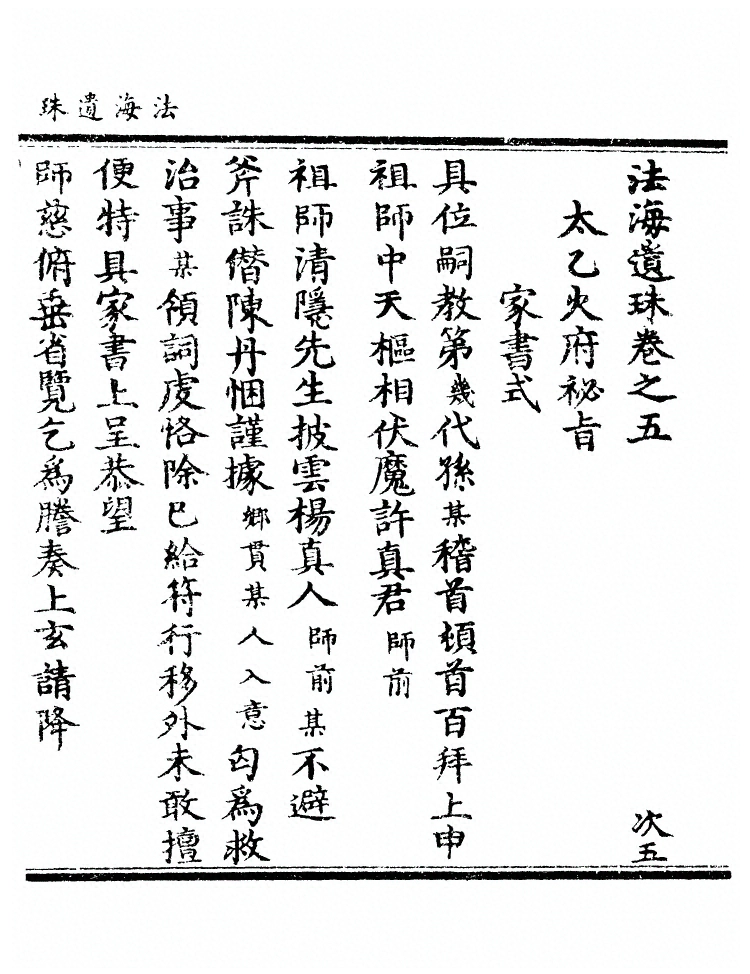 法海遺珠
法海遺珠卷之五　次五
太乙火府祕旨
家書式
具位嗣教第幾代孫某稽首頓首百拜上申
祖師中天樞相伏魔許真君師前
祖師清隱先生披雲楊真人師前某不避
斧誅僣陳丹悃謹據鄉貫某人入意匃為救
治事某領詞虔恪除已給符行移外未敢擅
便特具家書上呈恭望
師慈俯垂省覽乞為謄奏上玄請降